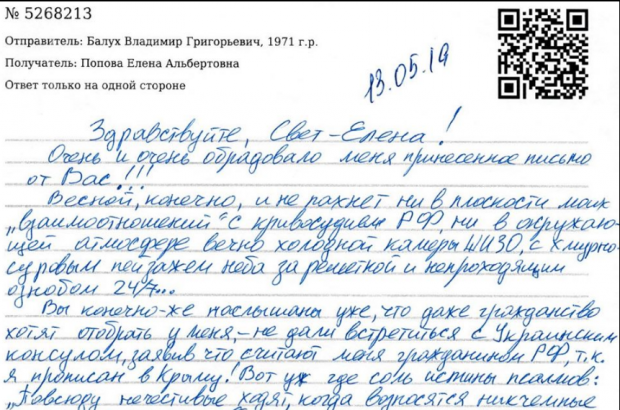 № 5268213
Отправитель: Балух Владимир Григорьевич, 1971 г.р.
Получатель: Попова Елена Альбертовна
Ответ только на одной стороне
13.05.19
Здравствуйте, Свет-Елена!
Очень и очень обрадовало меня принесенное письмо
от Вас!!!
Весной, конечно, и не пахнет ни в плоскости моих
„взаимоотношений" с кривосудием РФ, ни в окружаю-
щей атмосфере вечно холодной камеры ШИЗО, с хмурно-
суровым пейзажем неба за решеткой и непроходящим
ознобом 24/7...
Вы конечно-же наслышаны уже, что даже гражданство
хотят отобрать у меня,- не дали встретиться с Украинским
консулом, заявив что считают меня гражданином РФ, т.к.
я прописан в Крыму! Вот уж где соль истины псалмов:
„Повсюду нечестивые ходят, когда возносятся никчемные